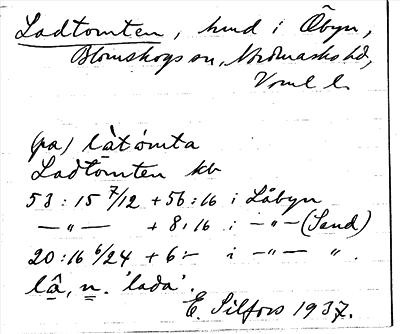 Ladtomten, hmd i Öbyn,
Blomskogs sn, Nordmarks hd,
Vrml l.
(pa) làtòmta
Ladtomten kb
53:15 7/12 + 56:16 i Låbyn
—"— + 8,16 i —"— (Sand)
20:16 6/24 + 6:- i —"— ".
lâ, n. 'lada'.
E. Silfors 1937.